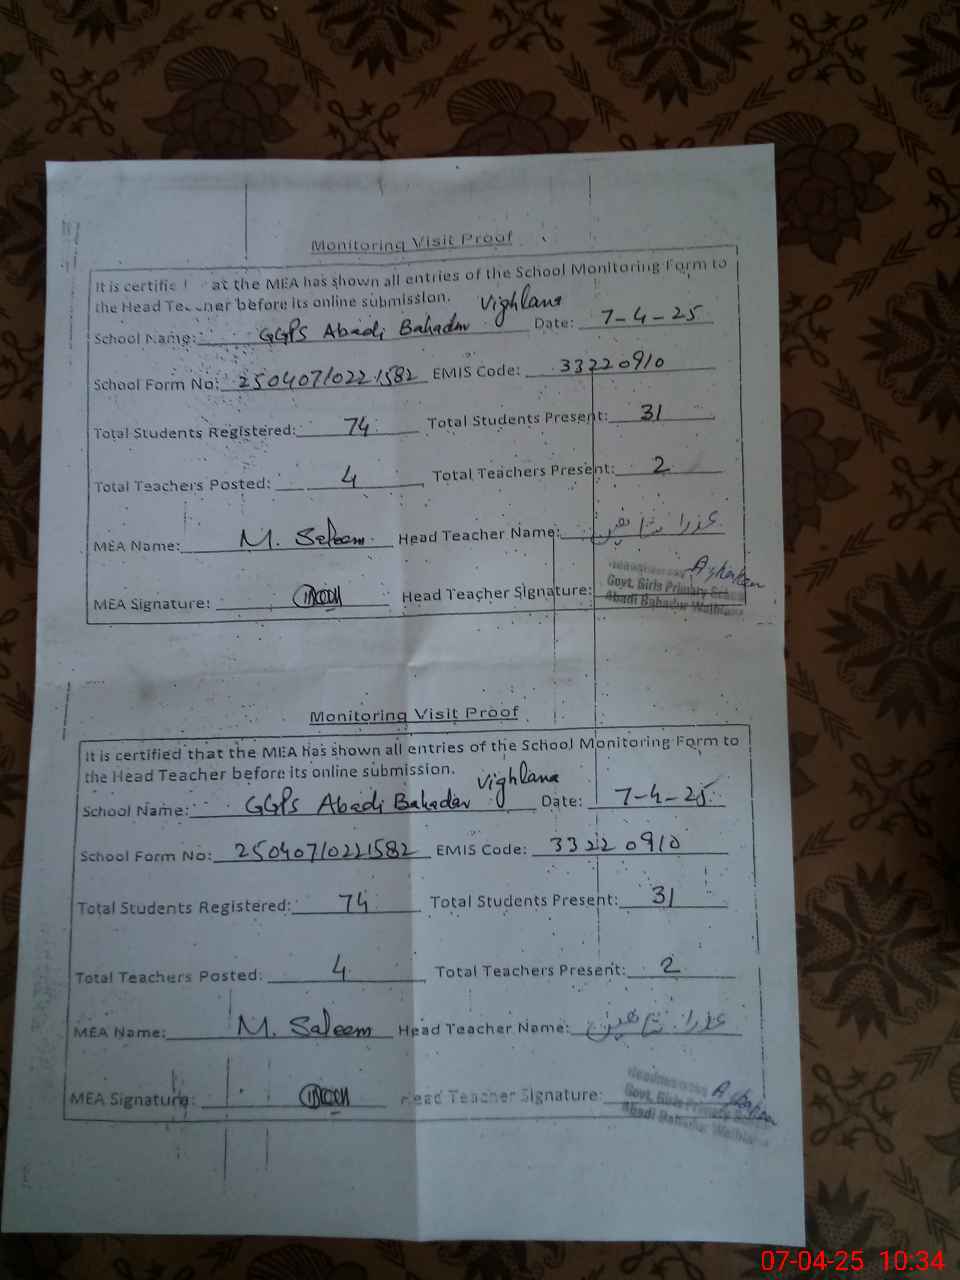 Monitoring Visit Proof
It is certifie at the MEA has shown all entries of the School Monitoring Form to
the Head Teacher before its online submission.
School Name: GGPS Abadi Bahadur Vighlana Date: 7-4-25
School Form No: 250407/0221582 EMIS Code: 33220910
Total Students Registered: 74 Total Students Present: 31
Total Teachers Posted: 4 Total Teachers Present: 2
MEA Name: M. Saleem Head Teacher Name: عذرا شاہین
MEA Signature: Head Teacher Signature: Ashaheen
Headmistress
Govt. Girls Primary School
Abadi Bahadur Walhlana
Monitoring Visit Proof
It is certified that the MEA has shown all entries of the School Monitoring Form to
the Head Teacher before its online submission.
School Name: GGPS Abadi Bahadar Vighlana Date: 7-4-25
School Form No: 250407/0221582 EMIS Code: 33220910
Total Students Registered: 74 Total Students Present: 31
Total Teachers Posted: 4 Total Teachers Present: 2
MEA Name: M. Saleem Head Teacher Name: عذرا شاہین
MEA Signature: Head Teacher Signature: Ashaheen
Headmistress
Govt. Girls Primary School
Abadi Bahadur Walhlana
07-04-25 10:34